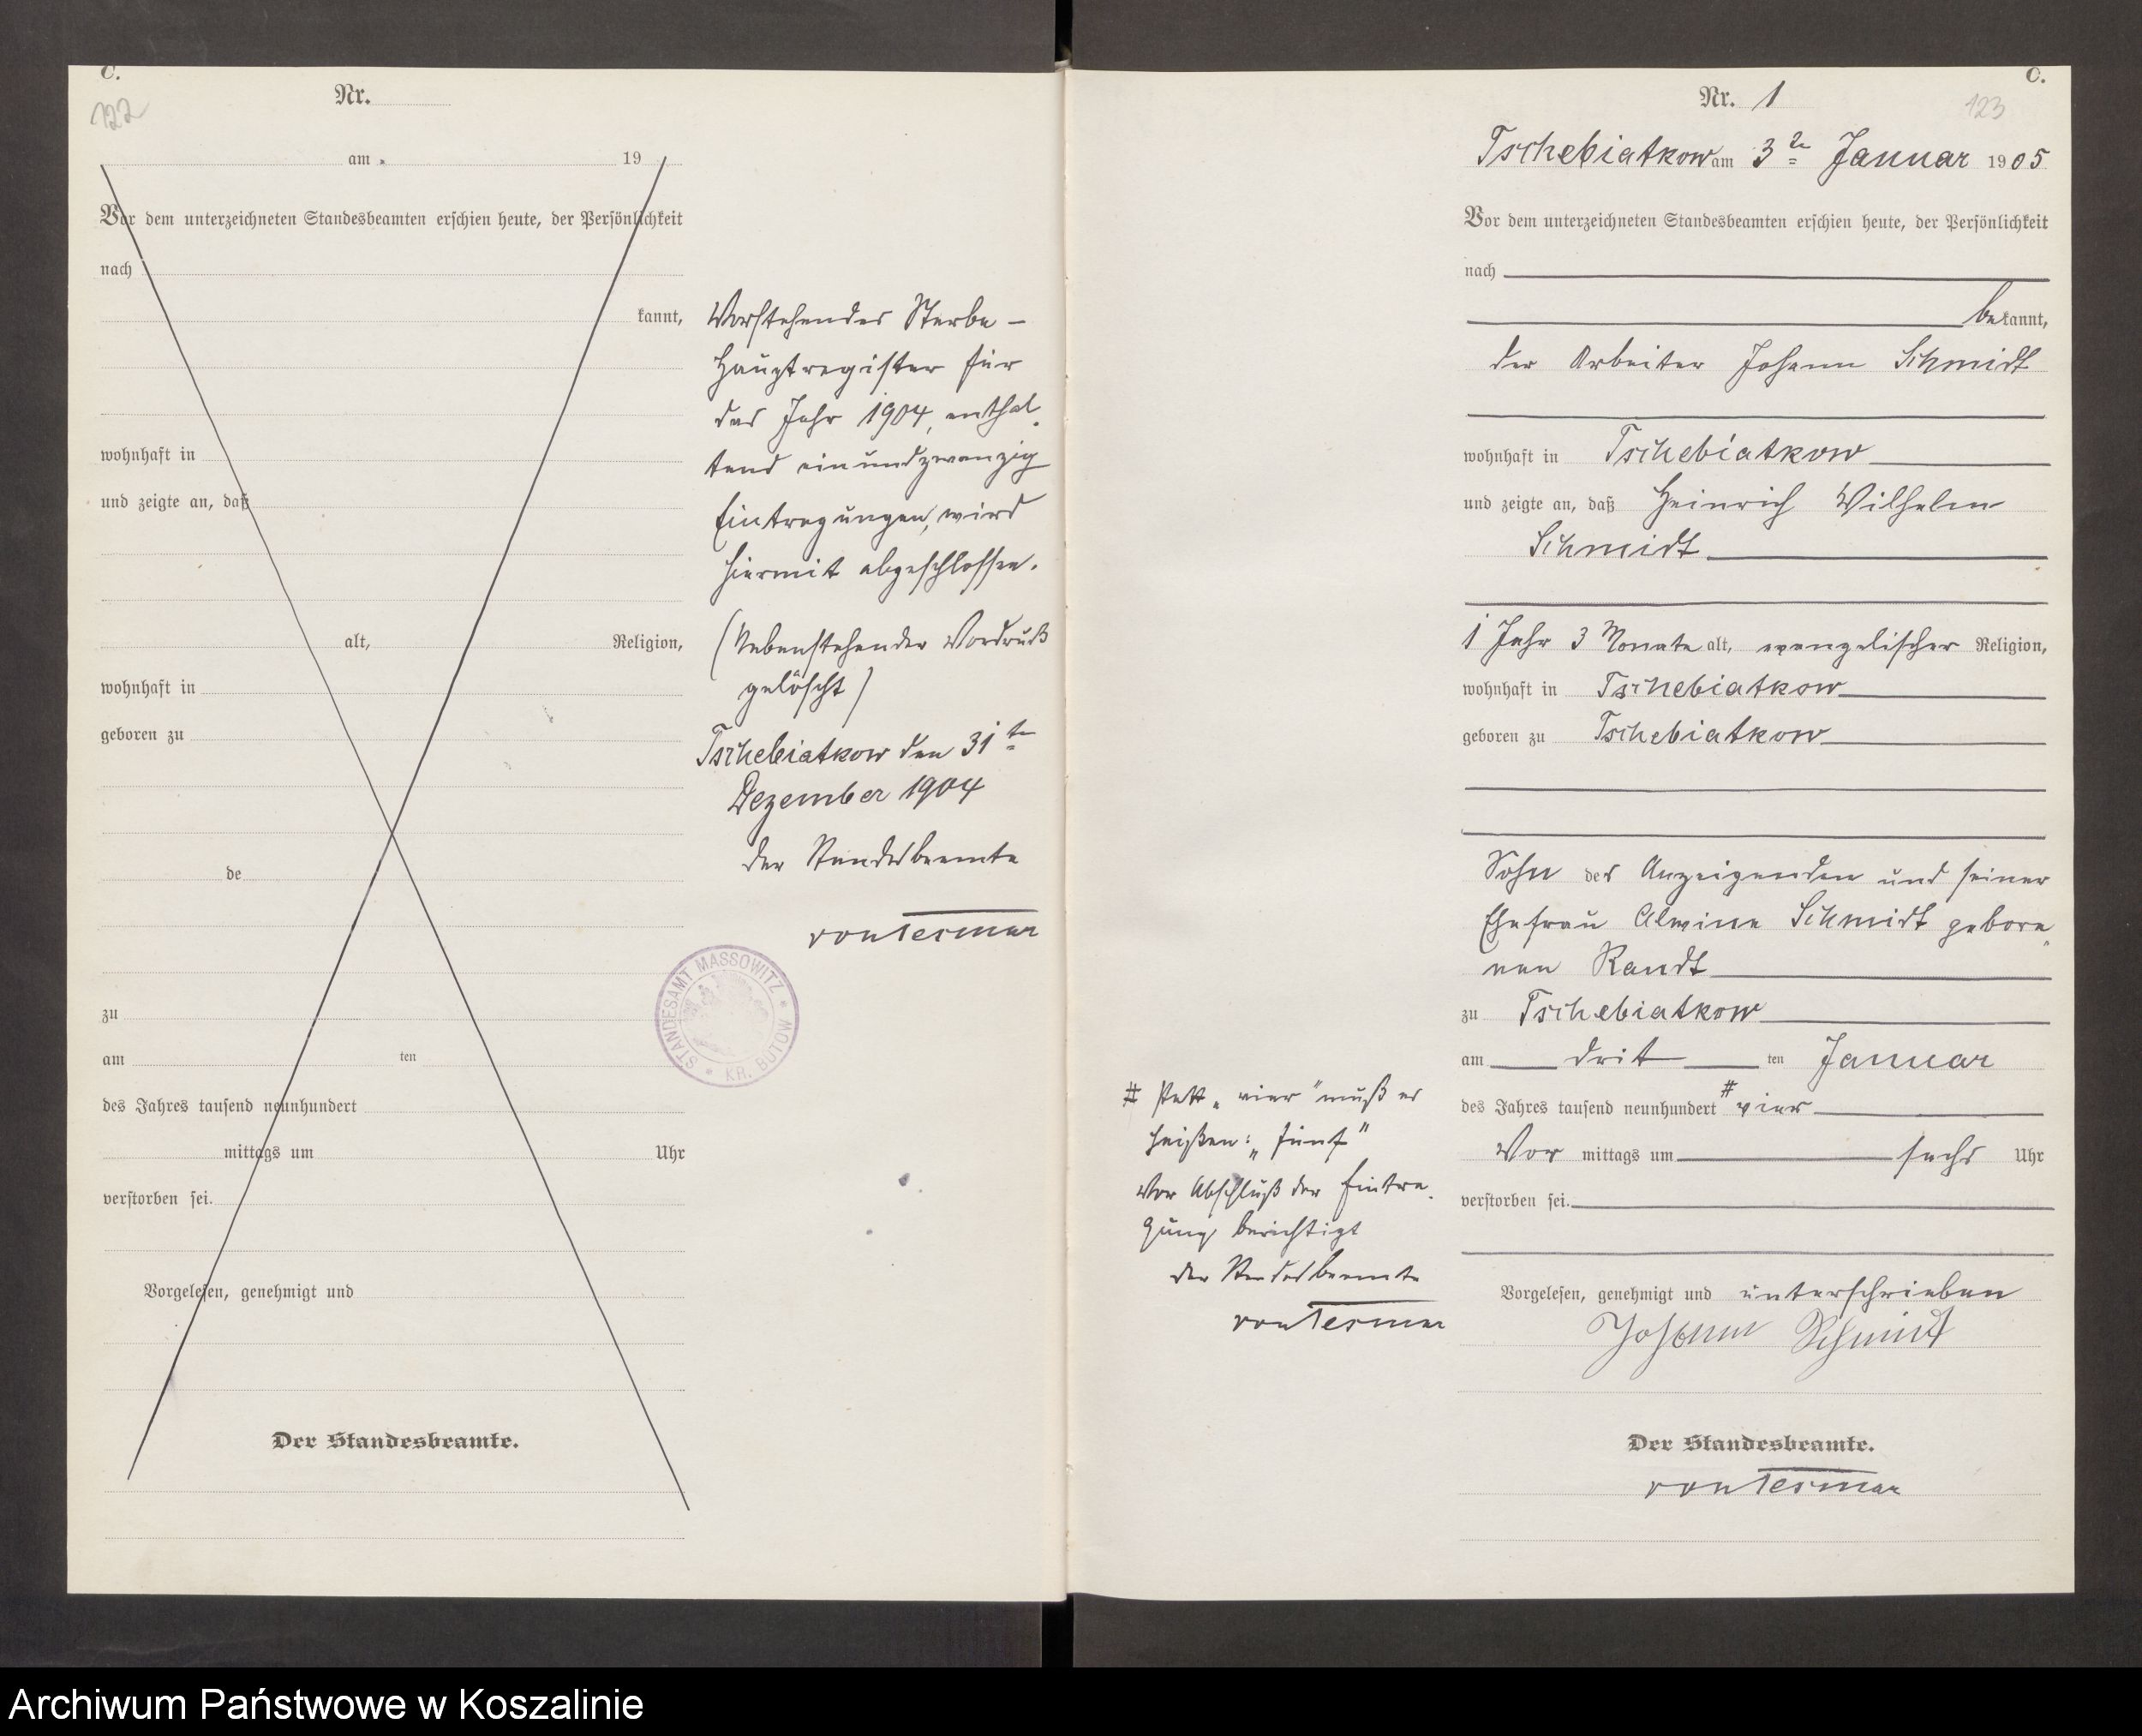 C.
122
Nr.
am 19
Vor dem unterzeichneten Standesbeamten erschien heute, der Persönlichkeit
nach
kannt,
wohnhaft in
und zeigte an, daß
alt, Religion,
wohnhaft in
geboren zu
de
zu
am ten
des Jahres tausend neunhundert
mittags um Uhr
verstorben sei.
Vorgelesen, genehmigt und
Der Standesbeamte.
Vorstehendes Sterbe-
Hauptregister für
das Jahr 1904, enthal-
tend einundzwanzig
Eintragungen, wird
hiermit abgeschlossen.
(Nebenstehender Vordruck
gelöscht)
Tschebiatkow den 31ten
Dezember 1904
der Standesbeamte
von Tesmar
STANDESAMT MASSOWITZ * KR. BÜTOW *
C.
123
Nr. 1
Tschebiatkow am 3te Januar 1905
Vor dem unterzeichneten Standesbeamten erschien heute, der Persönlichkeit
nach
bekannt,
der Arbeiter Johann Schmidt
wohnhaft in Tschebiatkow
und zeigte an, daß Heinrich Wilhelm
Schmidt
1 Jahr 3 Monate alt, evangelischer Religion,
wohnhaft in Tschebiatkow
geboren zu Tschebiatkow
Sohn des Anzeigenden und seiner
Ehefrau Alwine Schmidt gebore-
nen Randt
zu Tschebiatkow
am drit ten Januar
des Jahres tausend neunhundert # vier
Vor mittags um sechs Uhr
verstorben sei.
Vorgelesen, genehmigt und unterschrieben
Johann Schmidt
Der Standesbeamte.
von Tesmar
# Statt „vier" muß es
heißen: „fünf"
Vor Abschluß der Eintra-
gung berichtigt
der Standesbeamte
von Tesmar
Archiwum Państwowe w Koszalinie